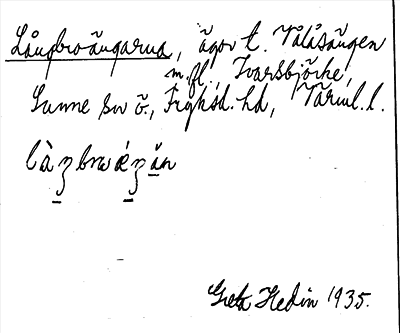 Långbroängarna, ägor t. Tålåsängen
m.fl. Ivarsbjörke,
Sunne sn ö., Fryksd. hd, Värml. l.
Greta Hedin 1935.